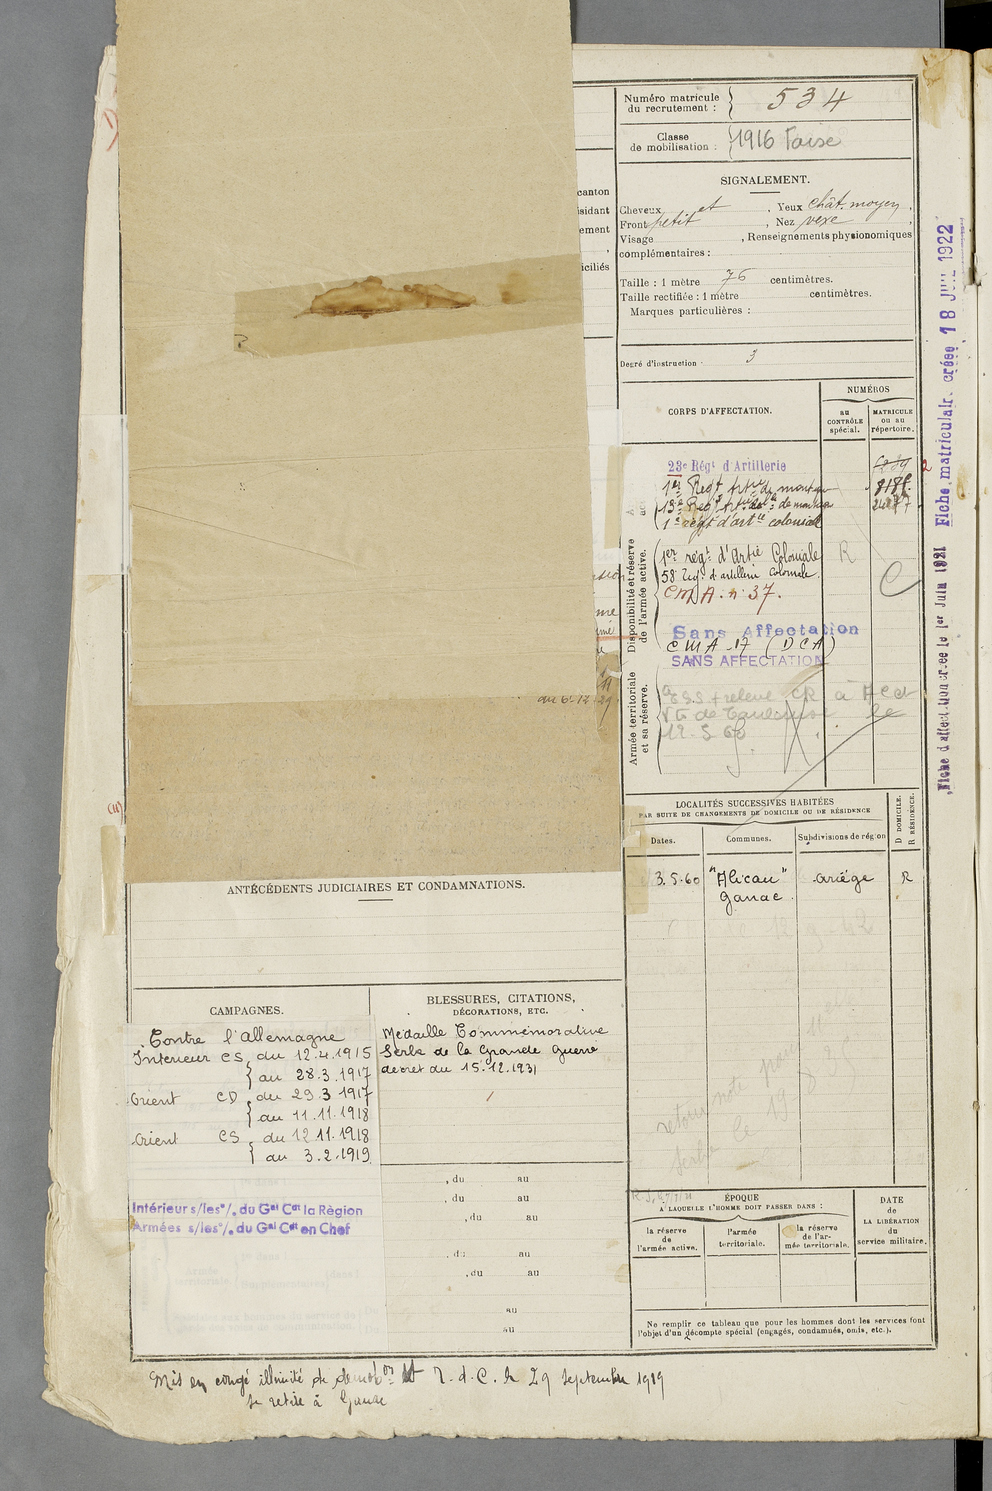 Numéro matricule
du recrutement : 534
Classe
de mobilisation : 1916
SIGNALEMENT.
Cheveux et , Yeux chât. moyen,
Front petit , Nez vexe
Visage , Renseignements physionomiques
complémentaires :
Taille : 1 mètre 76 centimètres.
Taille rectifiée : 1 mètre centimètres.
Marques particulières :
Degré d'instruction 3
canton
sidant
ement
iciliés
CORPS D'AFFECTATION.
NUMÉROS
au
CONTRÔLE
spécial.
MATRICULE
ou au
répertoire.
23e Régt d'Artillerie
1er Regt
1er régt d'artie colonial
1er régt d'Artie Coloniale R
58 Regt d'artillerie coloniale.
C M A . n° 37.
Sans Affectation
C M A 17 (D C A)
SANS AFFECTATION
12.5.60
Disponibilité et réserve
de l'armée active.
Armée territoriale
et sa réserve.
Fiche matricule créée 18 JUIL 1922
Fiche d'affectation créée le 1er Juin 1921
au 6-12-29
LOCALITÉS SUCCESSIVES HABITÉES
PAR SUITE DE CHANGEMENTS DE DOMICILE OU DE RÉSIDENCE
D DOMICILE.
R RÉSIDENCE.
Dates.
Communes.
Subdivisions de région
3.5.60 "Alicau" Ariége R
Ganac
ANTÉCÉDENTS JUDICIAIRES ET CONDAMNATIONS.
CAMPAGNES.
Contre l'Allemagne
Interieur CS du 12.4.1915
au 28.3.1917
Orient CD du 29.3.1917
au 11.11.1918
Orient CS du 12.11.1918
au 3.2.1919
Intérieur s/les o/. du Gal Cdt la Région
Armées s/les o/. du Gal Cdt en Chef
BLESSURES, CITATIONS,
DÉCORATIONS, ETC.
Médaille Commémorative
Serbe de la Grande Guerre
décret du 15.12.1931
, du au
, du au
, du au
, du au
, du au
au
au
retour note pour
Serbe le
ÉPOQUE
A LAQUELLE L'HOMME DOIT PASSER DANS :
la réserve
de
l'armée active.
l'armée
territoriale.
la réserve
de l'ar-
mée territoriale.
DATE
de
LA LIBÉRATION
du
service militaire.
Ne remplir ce tableau que pour les hommes dont les services font
l'objet d'un décompte spécial (engagés, condamnés, omis, etc.).
Mis en congé illimité de démobon R.d.C. le 29 Septembre 1919
se retire à Ganac